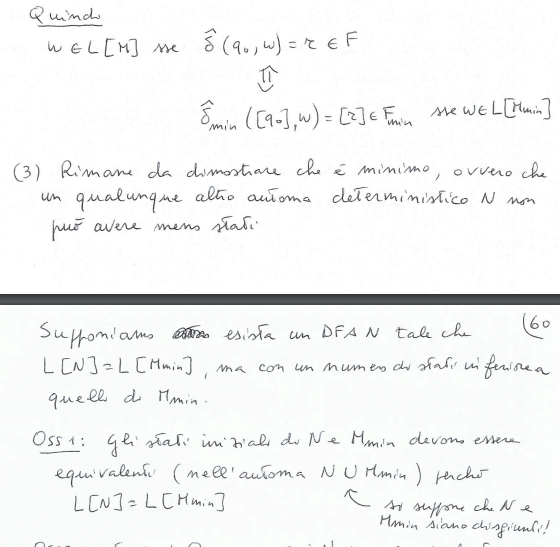 Quindi
w ∈ L[M] sse δ̂(q₀, w) = r ∈ F
⇕
δ̂min([q₀], w) = [r] ∈ Fmin sse w ∈ L[Mmin]
(3) Rimane da dimostrare che è minimo, ovvero che
un qualunque altro automa deterministico N non
può avere meno stati
(60
Supponiamo esista un DFA N tale che
L[N] = L[Mmin], ma con un numero di stati inferiore a
quelli di Mmin.
Oss 1: Gli stati iniziali di N e Mmin devono essere
equivalenti (nell'automa N ∪ Mmin) perché
L[N] = L[Mmin]
↖ si suppone che N e
Mmin siano disgiunti!